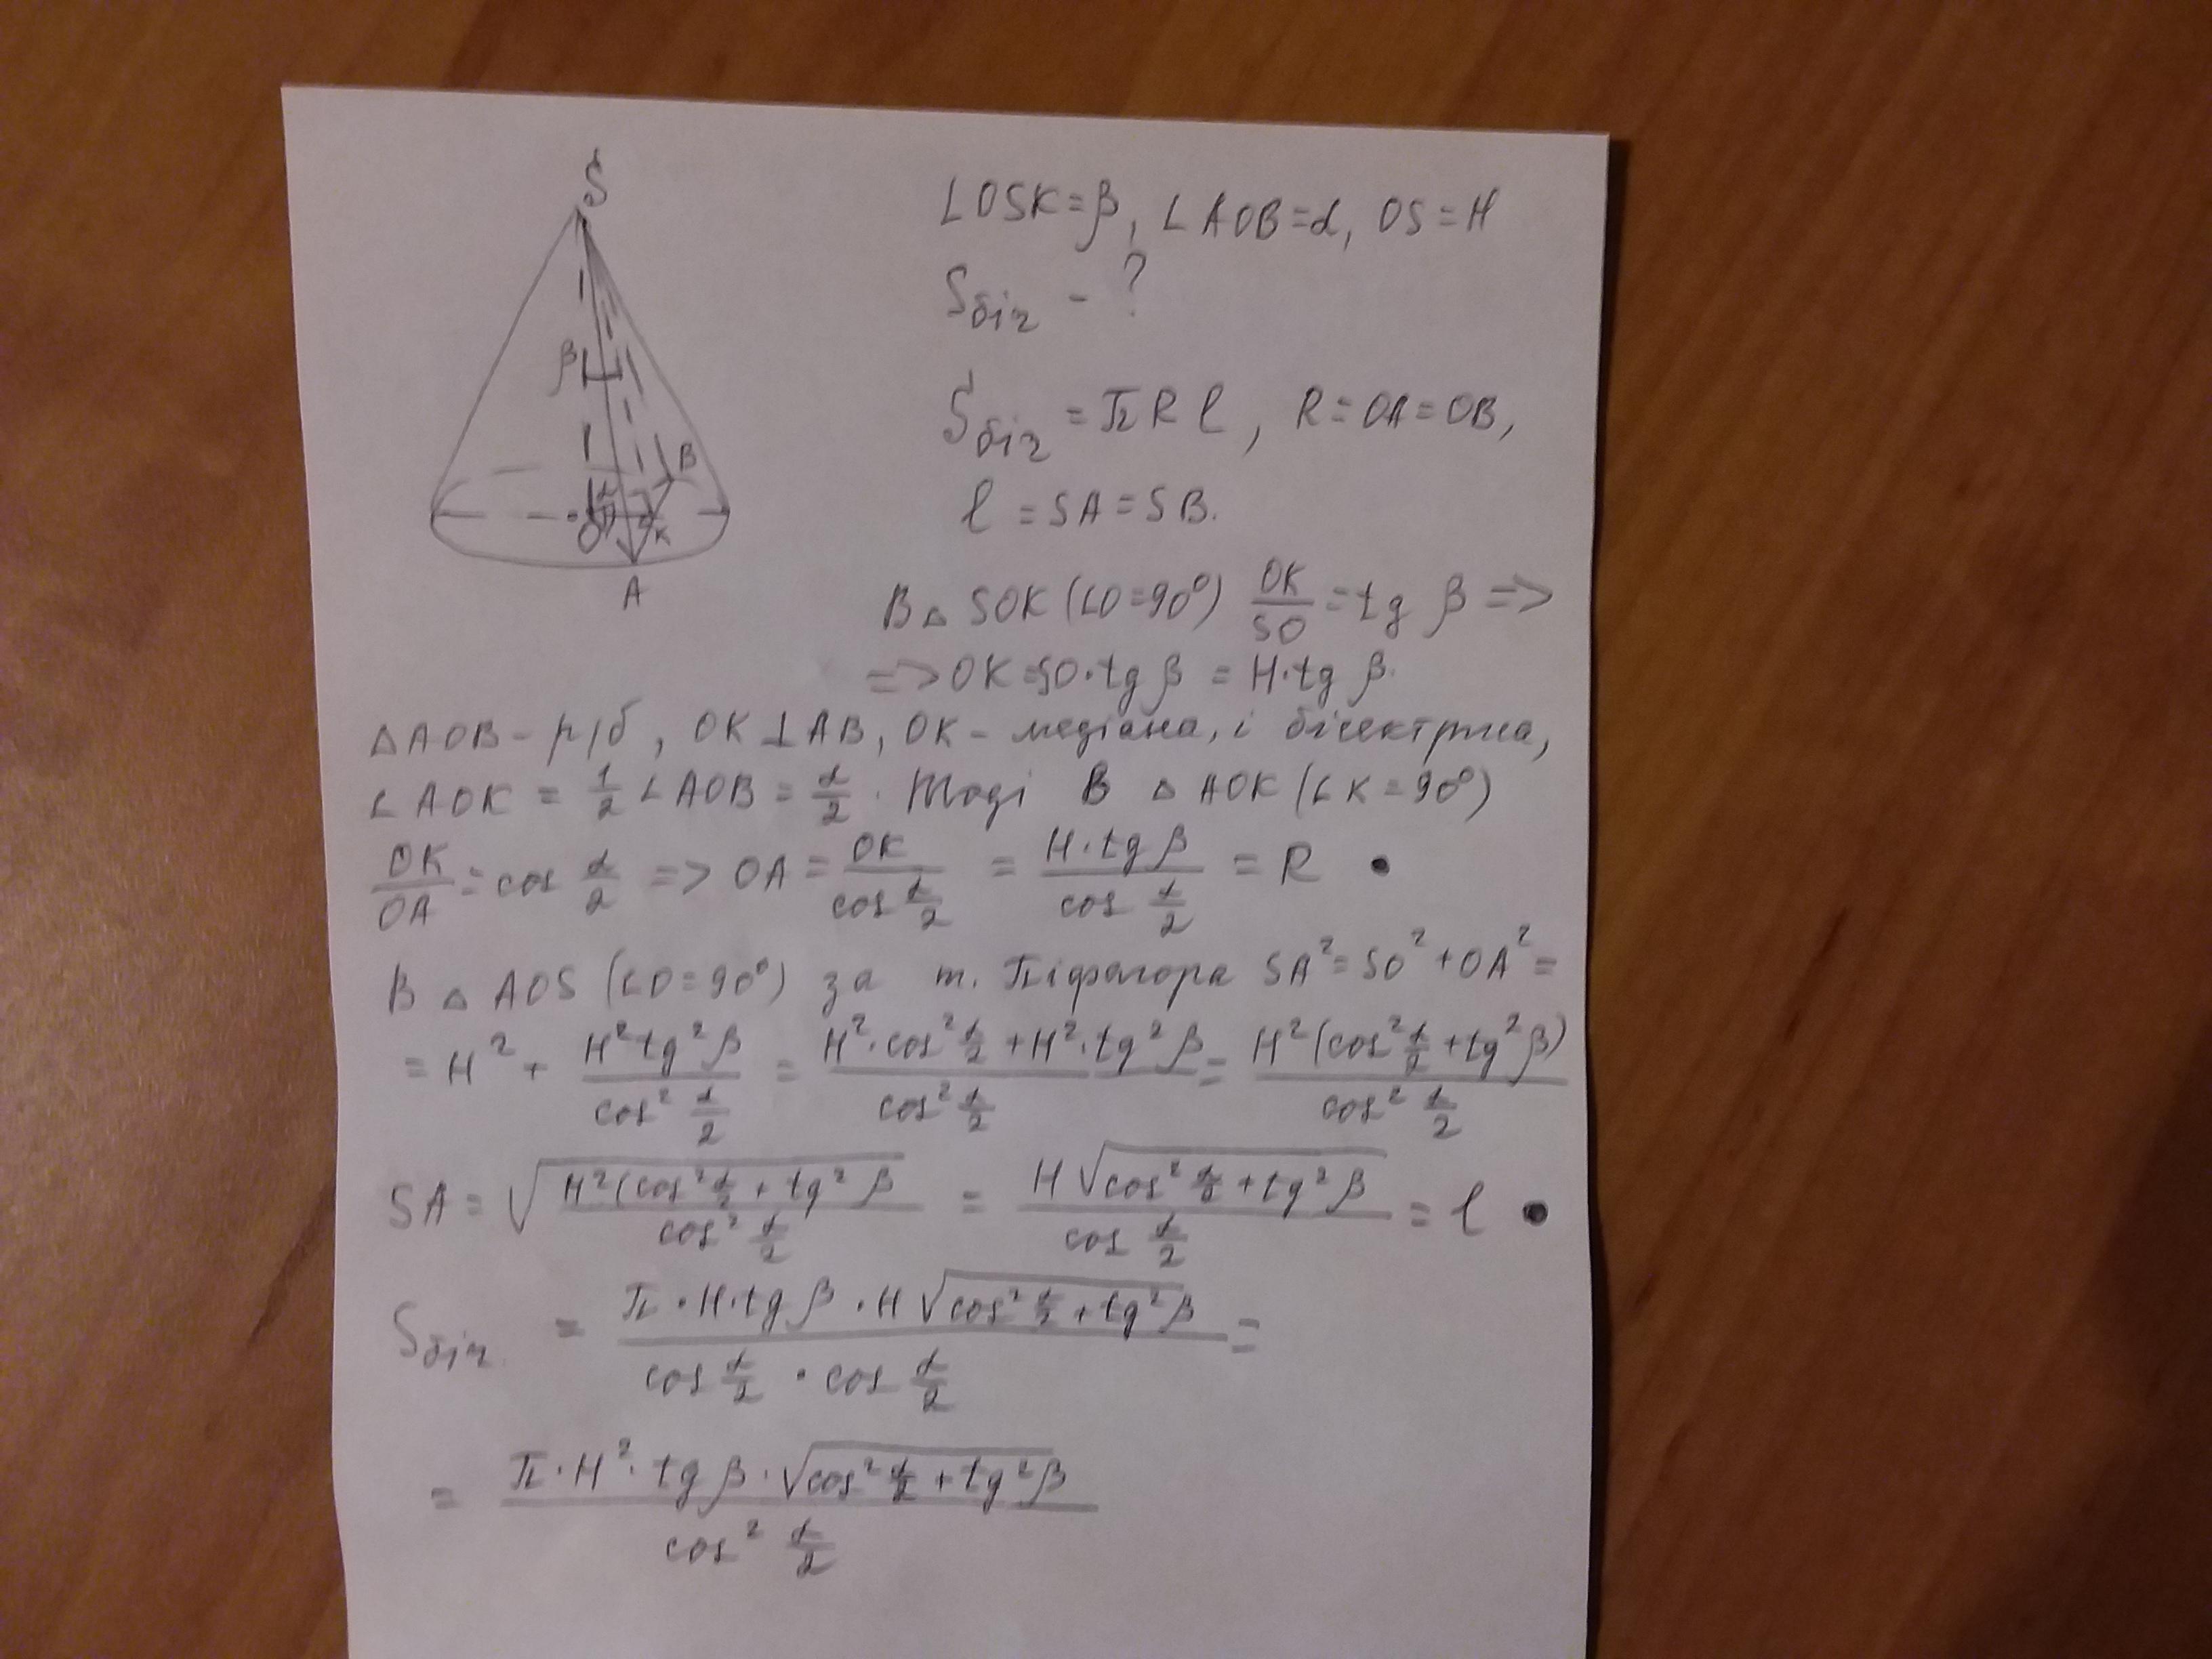 S
β
B
α
O
K
A
∠OSK=β, ∠AOB=α, OS=H
Sбіч - ?
Sбіч = πRl, R=OA=OB,
l = SA = SB.
В △ SOK (∠O=90°) OK/SO = tg β =>
=> OK=SO·tg β = H·tg β.
△AOB - р/б, OK⊥AB, OK - медіана, і бісектриса,
∠AOK = 1/2 ∠AOB = α/2. Тоді в △ AOK (∠K=90°)
OK/OA = cos α/2 => OA = OK/cos α/2 = H·tg β/cos α/2 = R •
В △ AOS (∠O=90°) за т. Піфагора SA² = SO² + OA² =
= H² + H² tg² β/cos² α/2 = H²·cos² α/2 + H²·tg² β/cos² α/2 = H²(cos² α/2 + tg² β)/cos² α/2
SA = √H²(cos² α/2 + tg² β/cos² α/2 = H√cos² α/2 + tg² β/cos α/2 = l •
Sбіч. = π·H·tg β·H√cos² α/2 + tg² β/cos α/2 · cos α/2 =
= π·H²·tg β·√cos² α/2 + tg² β/cos² α/2